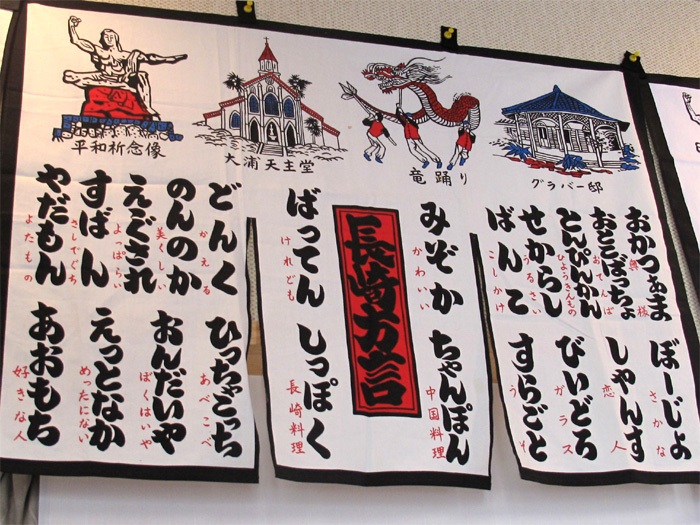 平和祈念像
大浦天主堂
竜踊り
グラバー邸
おかつぁま
奥様
おとこばっちょ
おてんば
とんぴんかん
ひょうきんもの
せからし
うるさい
ばんこ
こしかけ
ぼーじょ
じょな
しゃんす
恋人
びいどろ
ガラス
すらごと
うそ
みぞか
かわいい
ちゃんぽん
中国料理
長崎方言
ばってん
けれども
しっぽく
長崎料理
どんく
かえる
のんのか
美くしい
えぐされ
よっぱらい
すばん
さしでぐち
やだもん
よたもの
ひっちゃごっち
あべこべ
おんだいや
ぼくはいや
えっとなか
めったにない
あおもち
好きな人